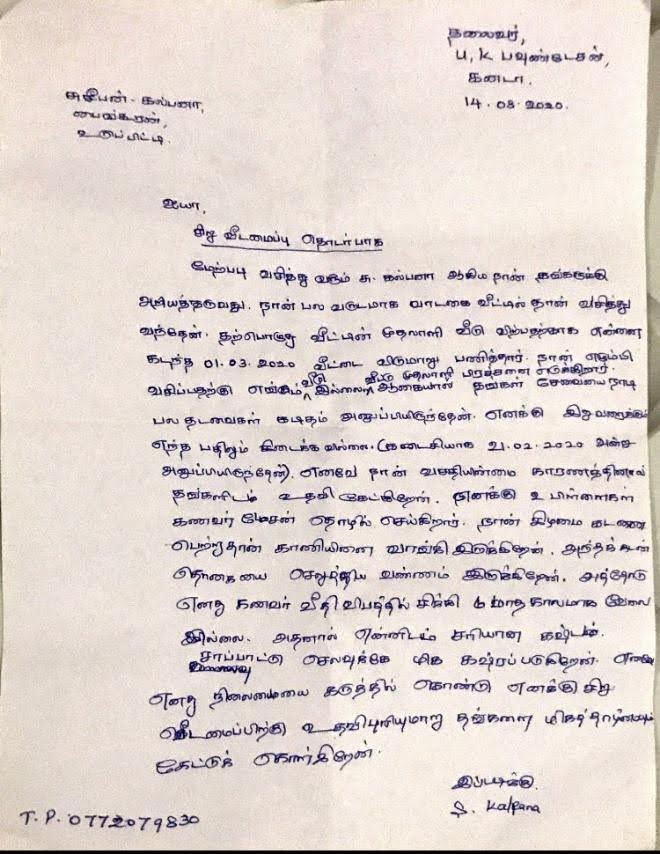 தலைவர்,
U, K பவுண்டேசன்,
கனடா.
14.03.2020.
சுதீபன் - கல்பனா,
உடுப்பிட்டி.
ஐயா,
சிறு வீடமைப்பு தொடர்பாக
மேற்படி வசித்து வரும் சு. கல்பனா ஆகிய நான் தங்களுக்கு
அறியத்தருவது. நான் பல வருடமாக வாடகை வீட்டில் தான் வசித்து
வந்தேன். தற்பொழுது வீட்டின் முதலாளி வீடு விற்பதற்காக என்னை
கடந்த 01.03.2020 வீட்டை விடுமாறு பணித்தார். நான் எழும்பி
வசிப்பதற்கு எங்கும் வீடு இல்லை வீட்டு முதலாளி பிரச்சனை எடுக்கிறார். ஆகையால் தங்கள் சேவையை நாடி
பல தடவைகள் கடிதம் அனுப்பியிருந்தேன். எனக்கு இதுவரைக்கும்
எந்த பதிலும் கிடைக்க வில்லை. (கடைசியாக 21.02.2020 அன்று
அனுப்பியிருந்தேன்). எனவே நான் வசதியின்மை காரணத்தினால்
தங்களிடம் உதவி கேட்கிறேன். எனக்கு 2 பிள்ளைகள்
கணவர் மேசன் தொழில் செய்கிறார். நான் கிழமை கடனை
பெற்றுதான் காணியினை வாங்கி இருக்கிறேன். அந்தக் கடன்
தொகையை செலுத்திய வண்ணம் இருக்கிறேன். அத்தோடு
எனது கணவர் வீதி விபத்தில் சிக்கி 6 மாத காலமாக வேலை
இல்லை. அதனால் என்னிடம் சரியான கஷ்டம்.
சாப்பாட்டு செலவுக்கே மிக கஷ்ரப்படுகிறேன். எனவே
எனது நிலைமையை கருத்தில் கொண்டு எனக்கு சிறு
வீடமைப்பிற்கு உதவிபுரியுமாறு தங்களை மிகத்தாழ்மையுடன்
கேட்டுக் கொள்கிறேன்.
இப்படிக்கு.
S. Kalpana
T.P. 0772079830